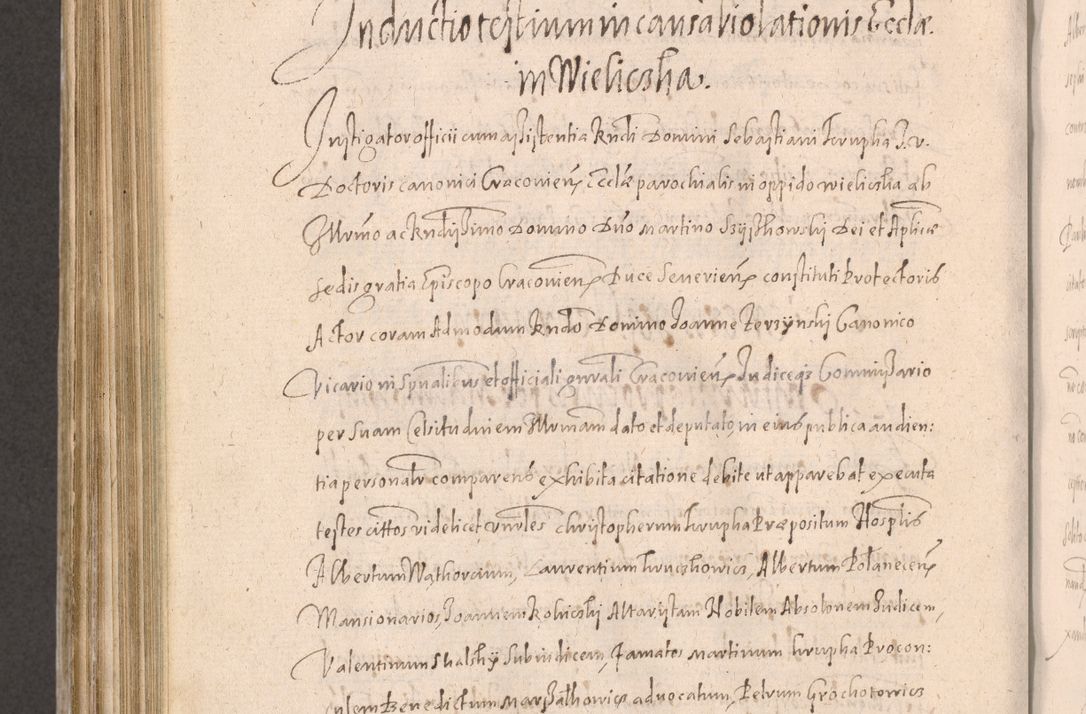 Inductio testium in causa violationis Eccłae
in Wieliczka.
Instigator officii cum assistentia Rndi Domini Sebastiani Krupka I. v.
Doctoris canonici Cracovien̄ Eccłae parochialis in oppido wieliczka ab
Illrmo ac Rndissimo Domino Dno Martino Szyszkowski Dei et Aplicae
sedis gratia Episcopo Cracovien̄ Duce Severien̄ constituti Protectoris
Actor coram Admodum Rndo Domino Joanne Kerzynski Canonico
Vicario in Spualibus et officiali gnrali Cracovien̄ Iudiceq3 Commissario
per suam Celsitudinem Illrmam dato et deputato, in eius publica audien:
tia personalr comparens exhibita citatione debite ut apparebat executa
testes cittos videlicet vnrles Christopherum Krupka Praepositum Hosplis
Albertum Wąthorcium, Laurentium Kruczkowicz, Albertum Polanecen̄
Mansionarios, Joannem Rokiczky Altaristam Nobilem Absolonem Iudicem,
Valentinum Skalsky Subiudicem, Famatos Martinum Krupka Procon:
sulem Benedictum Marszałkowicz advocatum, Petrum Grochotowicz